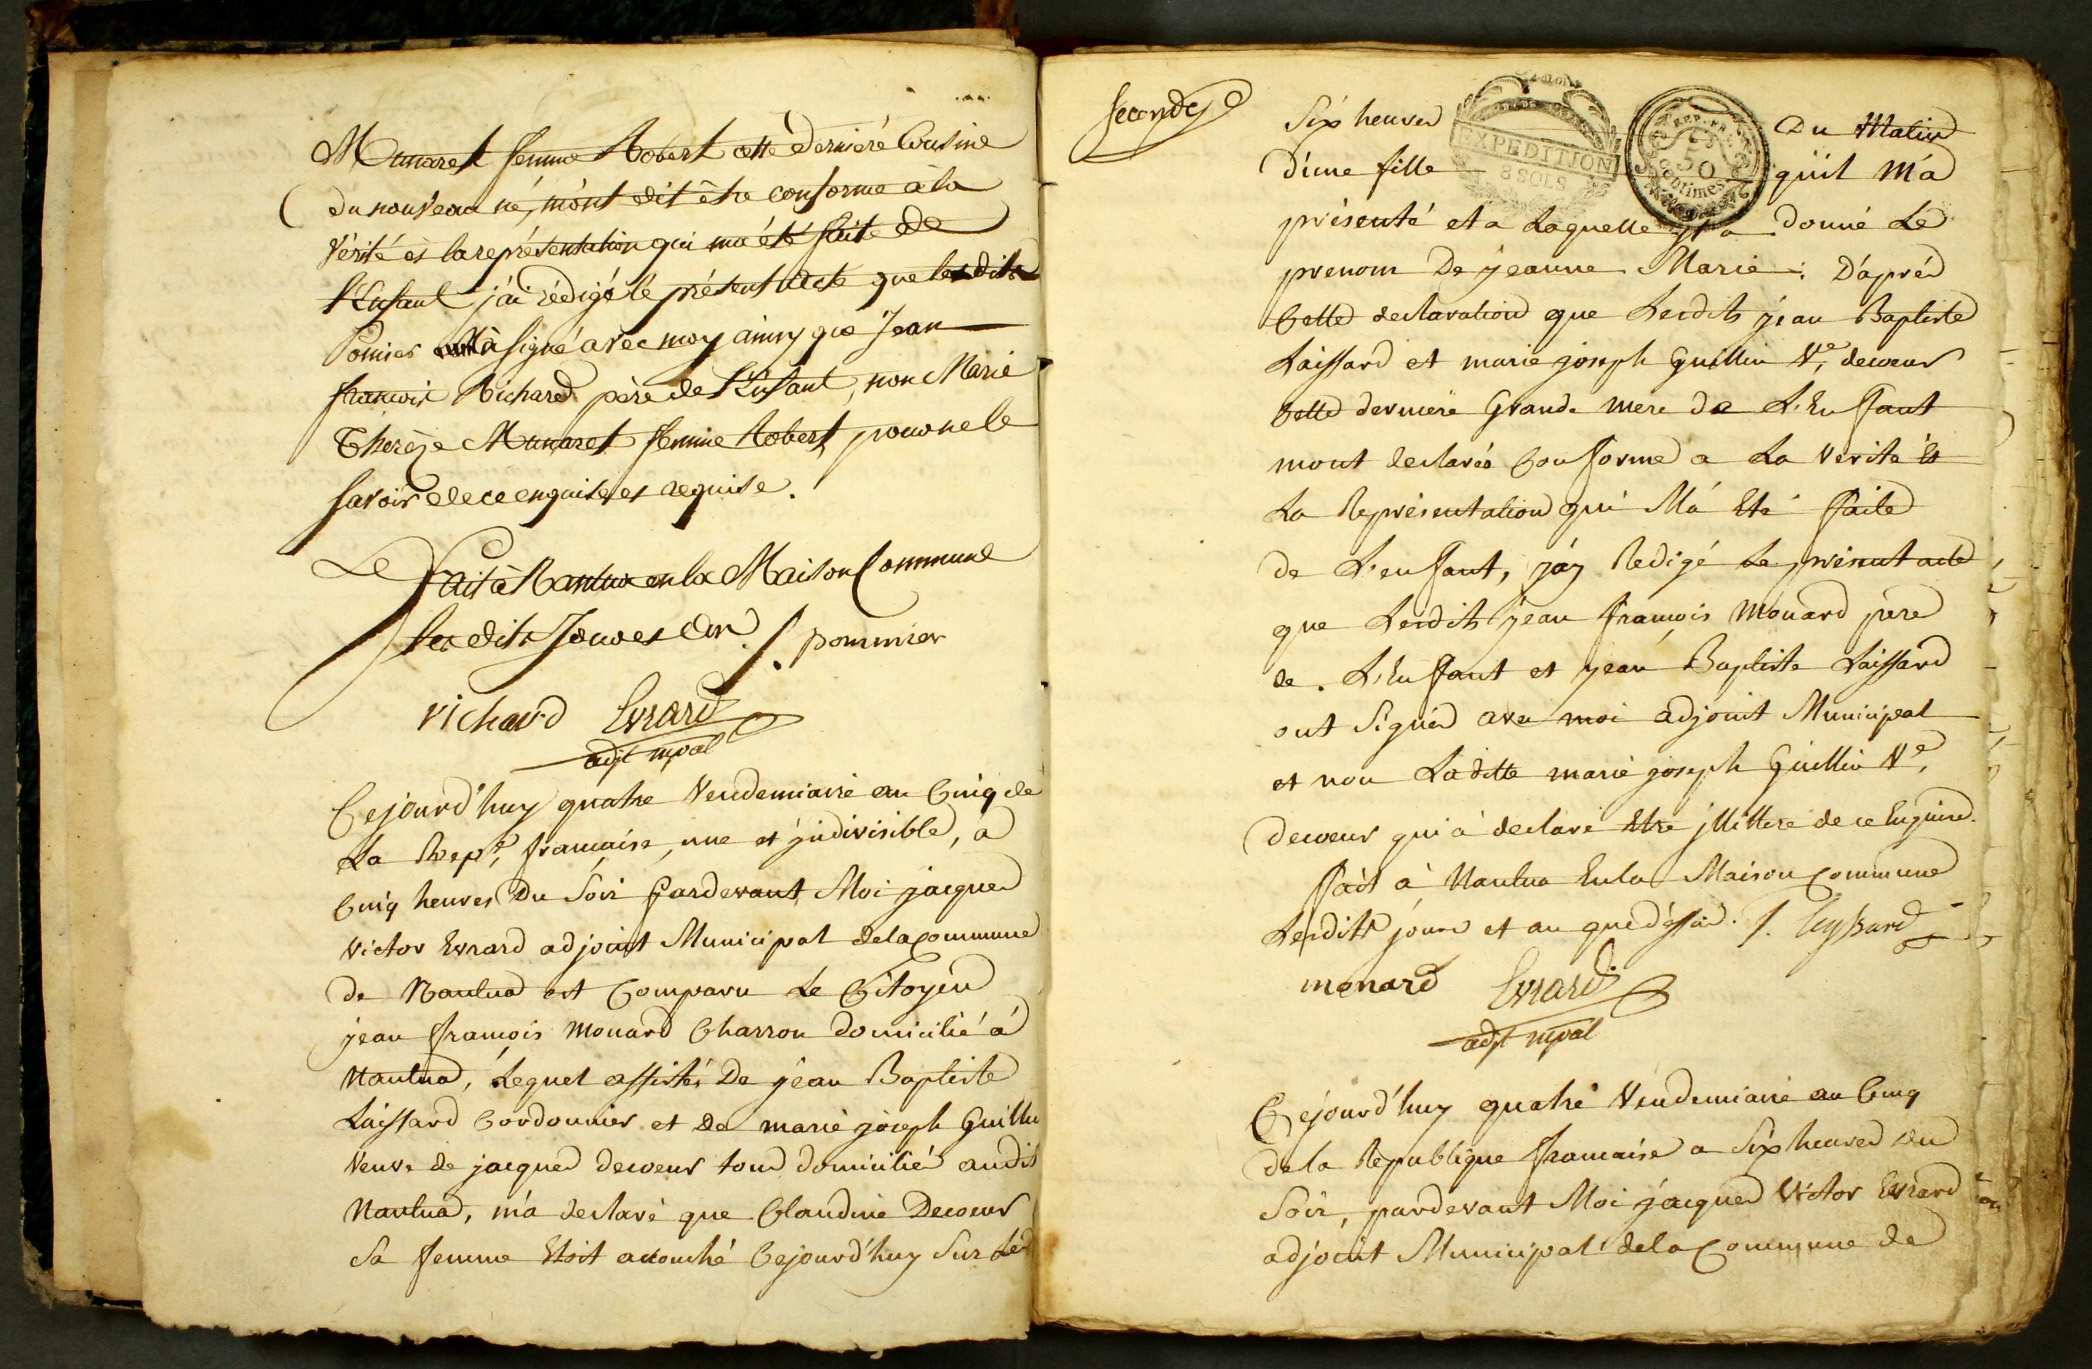 Munaret femme Robert cette derniere Cousine
du nouveau né, m'ont dit être conforme à la
Vérité et la représentation qui ma été faite de
l'Enfant j'ai rédigé le présent acte que lesdits
Pomier à signé avec moy ainsy que Jean
françois Richard père de l'Enfant, non Marie
Thereze Munaret femme Robert pour ne le
savoir de ce enquise et requise.
Fait à Nantua en la Maison Commune
les dits Jour et an. J. pommier
richard Evrard
adjt mpal
Cejourd'huy quatre Vendemiaire an Cinq de
La Repe, francaise, une et jndivisible, a
Cinq heures Du Soir Pardevant Moi jacques
Victor Evrard adjoint Municipal dela Commune
de Nantua est Comparu Le Citoyen
jean françois Monard Charron domicilié á
Nantua, Lequel assistés De jean Baptiste
Laissard Cordonnier et De marie joseph Guillin
Veuve de jacques decoeur tous domicilié audit
Nantua, m'a declaré que Claudine Decoeur
Sa femme Etoit accouché Cejourd'huy Sur Les
Seconde
Six heures Du Matin
EXPEDITION
8 SOLS
REP. FRA.
50
centimes
d'une fille qu'il M'a
présenté et a Laquelle il a donné Le
prenom De jeanne Marie: D'aprés
Cette declaration que Lesdits jean Baptiste
Laissard et marie joseph Guillin Ve, decoeur
Cette derniere Grande mere de L'Enfant
mont declarés Conforme a La Verité Et
La Représentation qui M'á Eté faite
de L'enfant, j'ay Redigé Le présent acte
que Lesdits jean françois Monard pere
de L'Enfant et jean Baptiste Laissard
ont Signés avec moi adjoint Municipal
et non Laditte marie joseph Guillin Ve,
decoeur qui a declaré Etre jllittere de ce Enquise.
fait à Nantua Enla Maison Commune
Lesdits jours et an que déssus. J. Leyssard
monard Evrard
adjt mpal
Cejourd'huy quatre Vendemiaire an Cinq
dela Republique francaise a Six heures du
Soir, pardevant Moi jacques Victor Evrard
adjoint Municipal dela Commune de